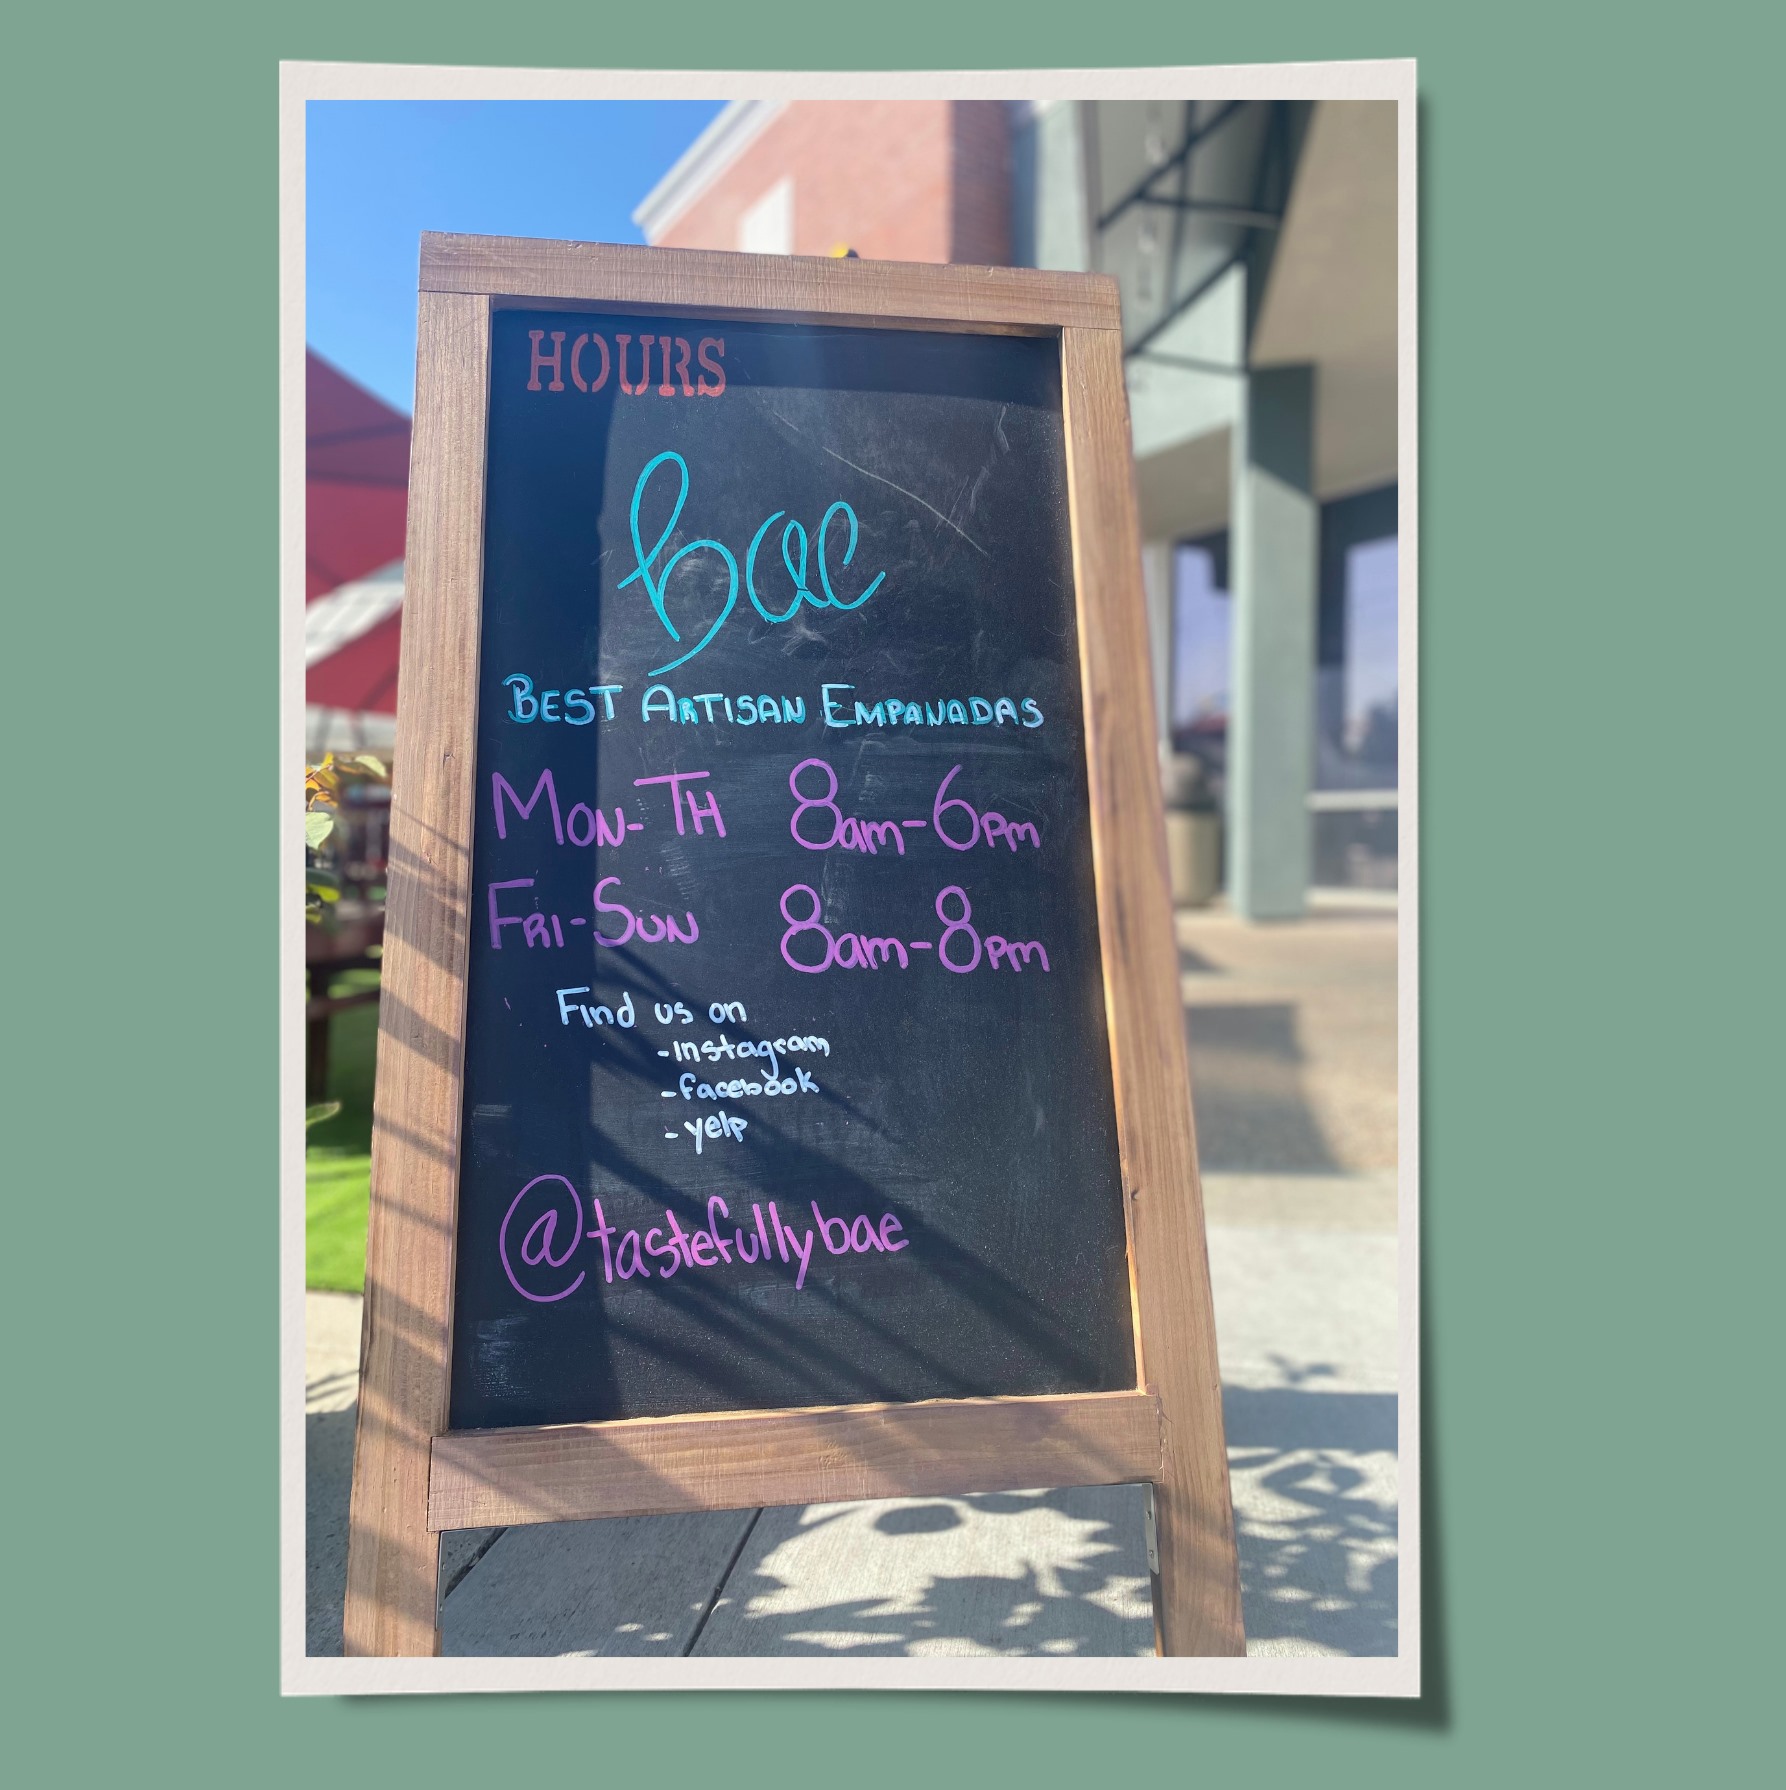 HOURS
bae
BEST ARTISAN EMPANADAS
MON-TH 8am-6pm
FRI-SUN 8am-8pm
Find us on
-Instagram
-facebook
-yelp
@tastefullybae